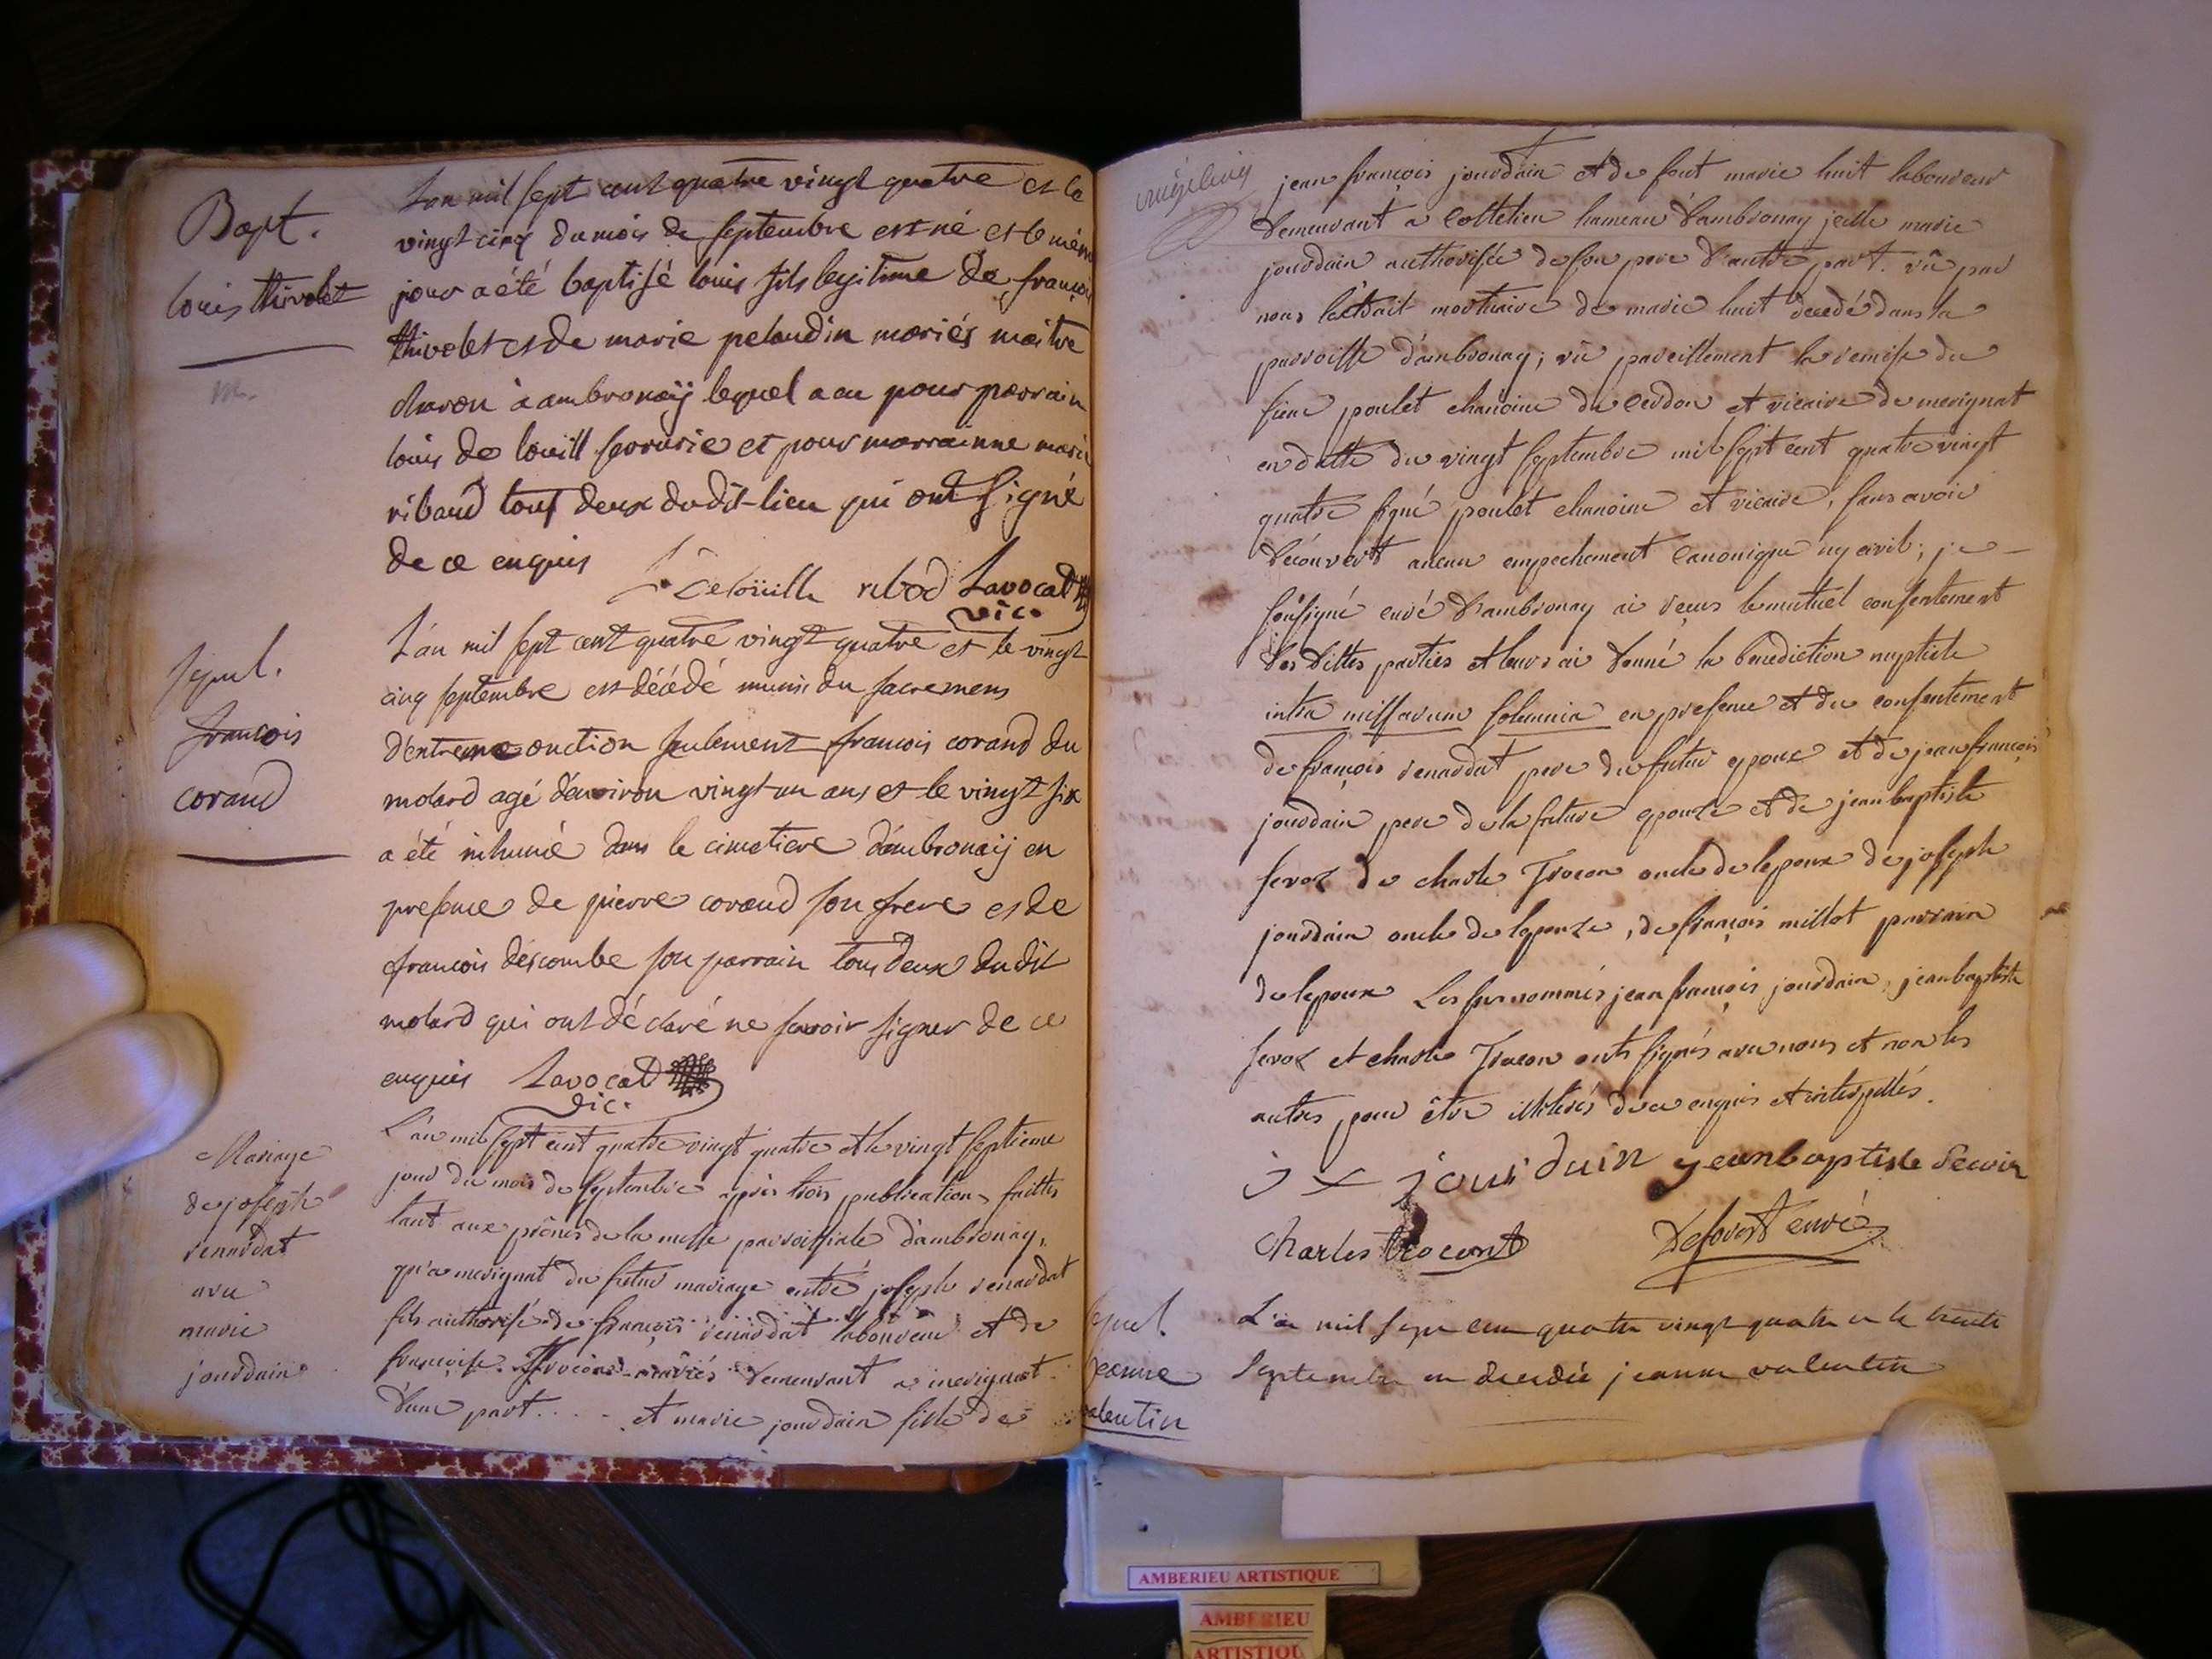 Bapt.
louis thivolet
L'an mil sept cent quatre vingt quatre et le
vingt cinq du mois de septembre est né et le même
jour a été baptisé louis fils legitime de françois
thivolet et de marie pelaudin mariés maitre
charon à ambronaÿ lequel a eu pour parrain
louis de louill serrurie et pour marrainne marie
ribaud tous deux du dit-lieu qui ont signé
de ce enquis
Delouille ribod Lavocat
vic.
sepul.
francois
corand
L'an mil sept cent quatre vingt quatre et le vingt
cinq septembre est décédé muni du sacremens
d'extreme onction seulement francois corand du
molard agé d'environ vingt un ans et le vingt six
a été inhumé dans le cimetiere d'ambronaÿ en
presence de pierre corand son frere et de
francois descombe son parrain tous deux du dit
molard qui ont déclaré ne savoir signer de ce
enquis Lavocat
vic.
Mariage
de joseph
renardat
avec
marie
jourdain
L'an mil sept cent quatre vingt quatre et le vingt septieme
jour du mois de septembre après trois publications faittes
tant aux prônes de la messe parroissiale d'ambronay,
qu'a merignat du futur mariage entre joseph renardat
fils authorisé de françois renardat laboureur et de
françoise Trocon mariés demeurant a merignat
d'une part. . . . et marie jourdain fille de
jean françois jourdain et de feut marie huit laboureur
demeurant a Coltelieu hameau d'ambronay jcelle marie
jourdain authorisée de son pere d'autre part. vû par
nous l'extrait mortuaire de marie huit decedé dans la
parroisse d'ambronay; vû pareillement la remise du
sieur poulet chanoine de Cerdon et vicaire de merignat
en datte du vingt septembre mil sept cent quatre vingt
quatre signé poulet chanoine et vicaire, sans avoir
découvert aucun empechement canonique ny civil; je
soussigné curé d'ambronay ai reçus le mutuel consentement
des dittes parties et leurs ai donné la benediction nuptiale
intra missarum solemnia en presence et du consentement
de françois renardat pere du futur epoux et de jean françois
jourdain pere de la future epouze et de jean baptiste
de charle Trocon oncle de lepoux de joseph
jourdain oncle de lepouze, de françois millot parrain
de lepoux Les surnommés jean françois jourdain, jean baptiste
et charle Trocon onts signés avec nous et non les
autres pour être illiterés de ce enquis et interpellés.
j f jourdain jeanbaptiste
Charles trocont Deforest curé
sepul.
jeanne
valentin
L'an mil sept cent quatre vingt quatre et le trente
Septembre est decedée jeanne valentin
AMBERIEU ARTISTIQUE
AMBERIEU
ARTISTIQU